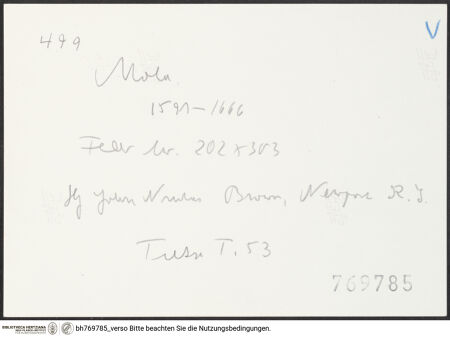 499
V
Mola
1591-1666
Feder br. 202 x 303
Slg John Nicholas Brown, Newport R.I.
T. 53
769785
BIBLIOTHECA HERTZIANA
bh769785_verso Bitte beachten Sie die Nutzungsbedingungen.